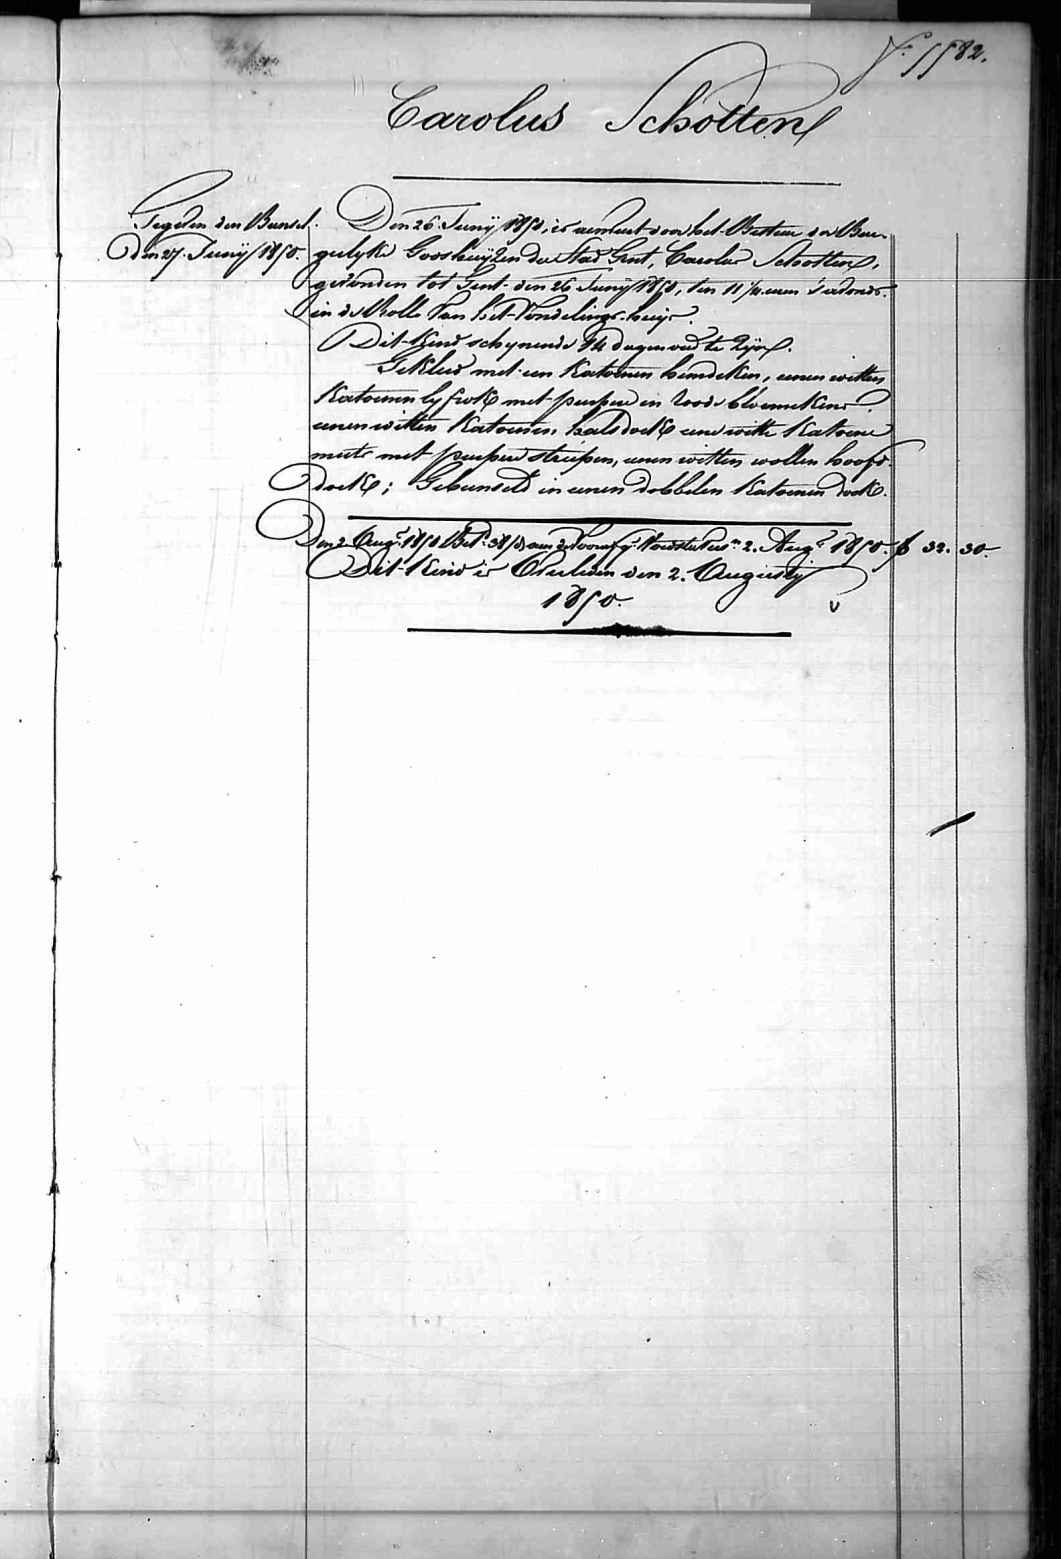 F.° 5582.
Carolus Schotten
Gegeven den Bunsel.
Den 27. Junij 1850.
Den 26. Junij 1850, is aenveert door het Bestier der Bur-
gelyke Godshuijzen der Stad Gent, Carolus Schotten,
gevonden tot Gent den 26 Junij 1850, ten 11 ¼ uren s'avonds.
in de Rolle van het Vondelings-huijs.
Dit Kind schynende 14 dagen oud te Zyn.
Gekleed met een Katoenen hemdeken, eenen witten
Katoenen lyfrok met purpere en roode bloemekens
eenen witten Katoenen halsdoek eene witte Katoene
muts met purpere streepen, eenen witten wollen hoofd-
doek; Gebunseld in eenen dobbelen Katoenen doek.
Den 2 Aug.t 1850 Bet.d 38 d. aen 2. Aug.t 1850. f 32. 30.
Dit Kind is Overleden den 2. Augusty
1850.